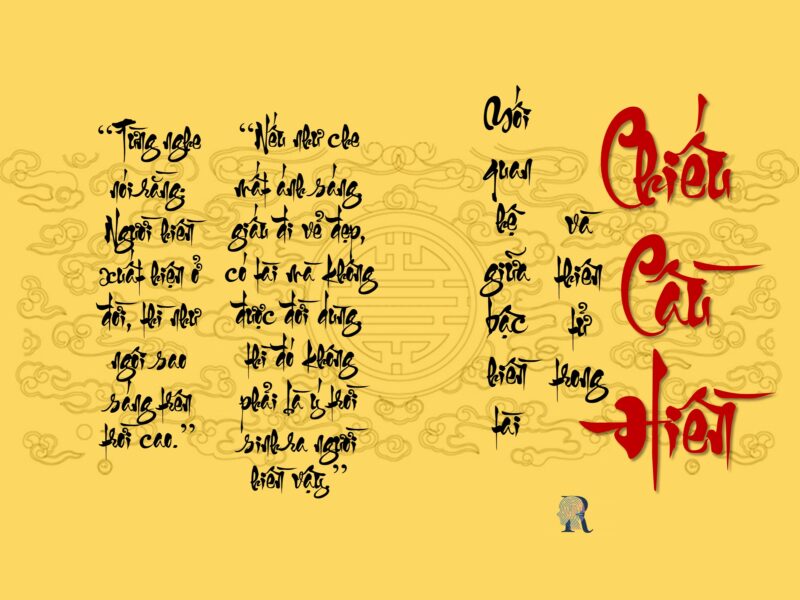 “Từng nghe
nói rằng:
Người hiền
xuất hiện ở
đời, thì như
ngôi sao
sáng trên
trời cao.”
“Nếu như che
mất ánh sáng
giấu đi vẻ đẹp,
có tài mà không
được đời dùng
thì đó không
phải là ý trời
sinh ra người
hiền vậy.”
Mối
quan
hệ
giữa
bậc
hiền
tài
và
thiên
tử
trong
Chiếu
Cầu
Hiền
R